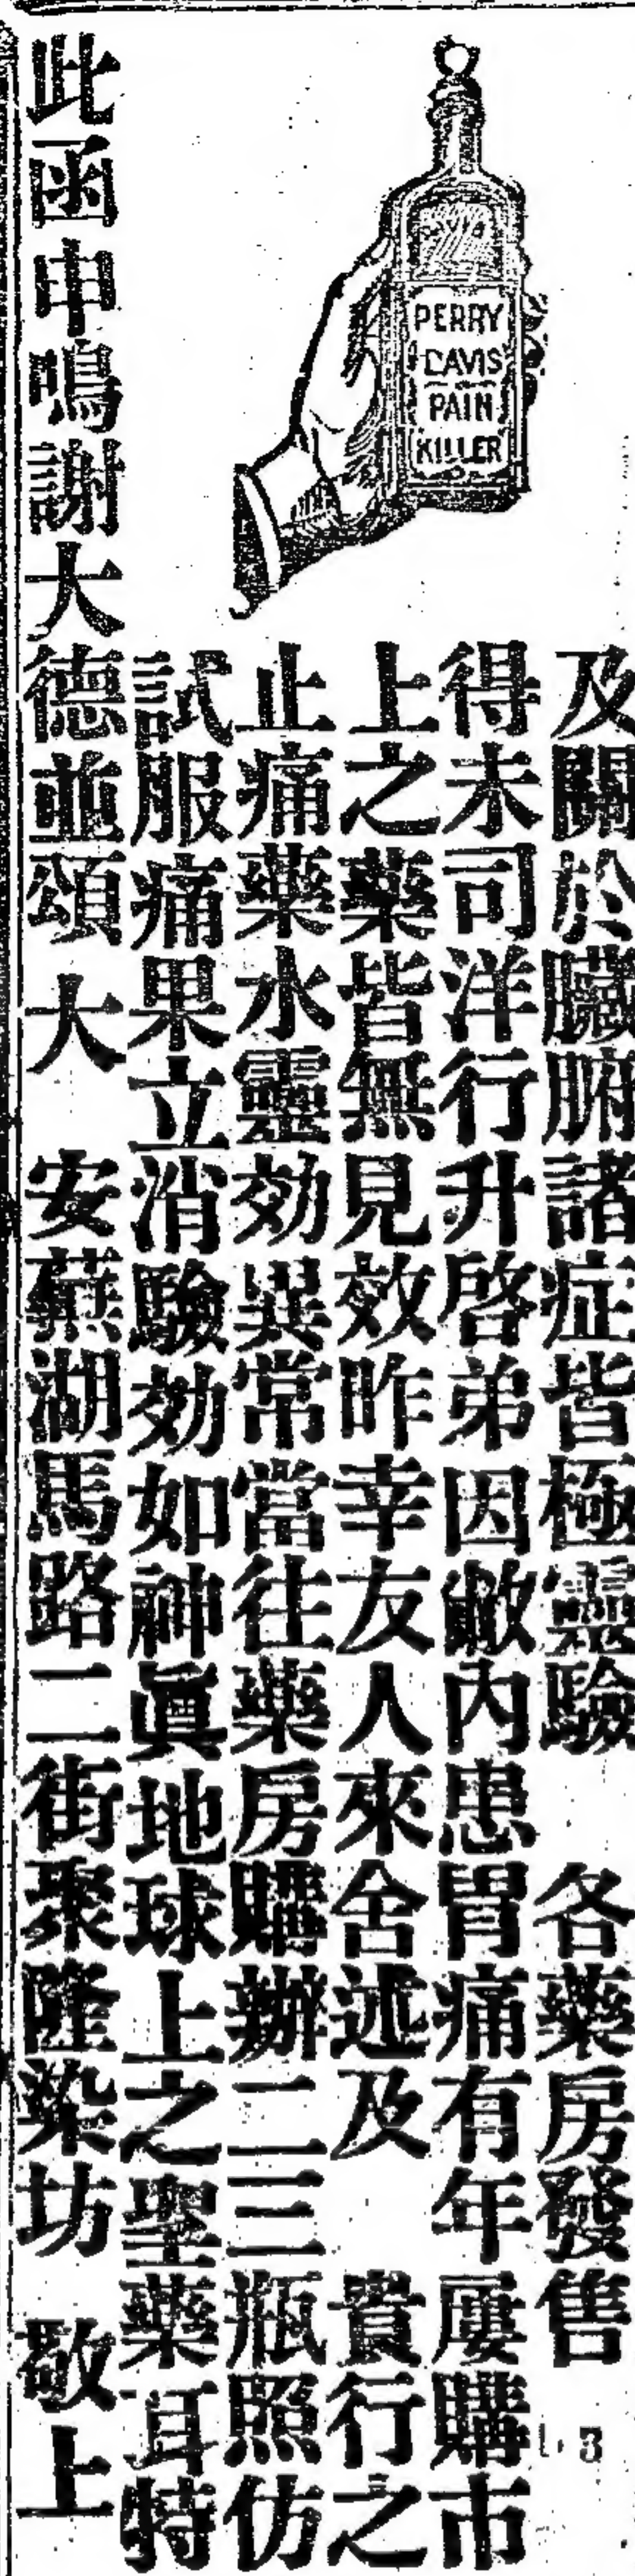 PERRY
DAVIS
PAIN
KILLER
及關於臟腑諸症皆極靈驗　各藥房發售
得未司洋行升啓弟因敝內患胃痛有年屢購市
上之藥皆無見效昨幸友人來舍述及　貴行之
止痛藥水靈効異常當往藥房購辦二三瓶照仿
試服痛果立消驗効如神眞地球上之聖藥耳特
此函申鳴謝大德並頌大　安蕪湖馬路二街聚隆染坊　敬上